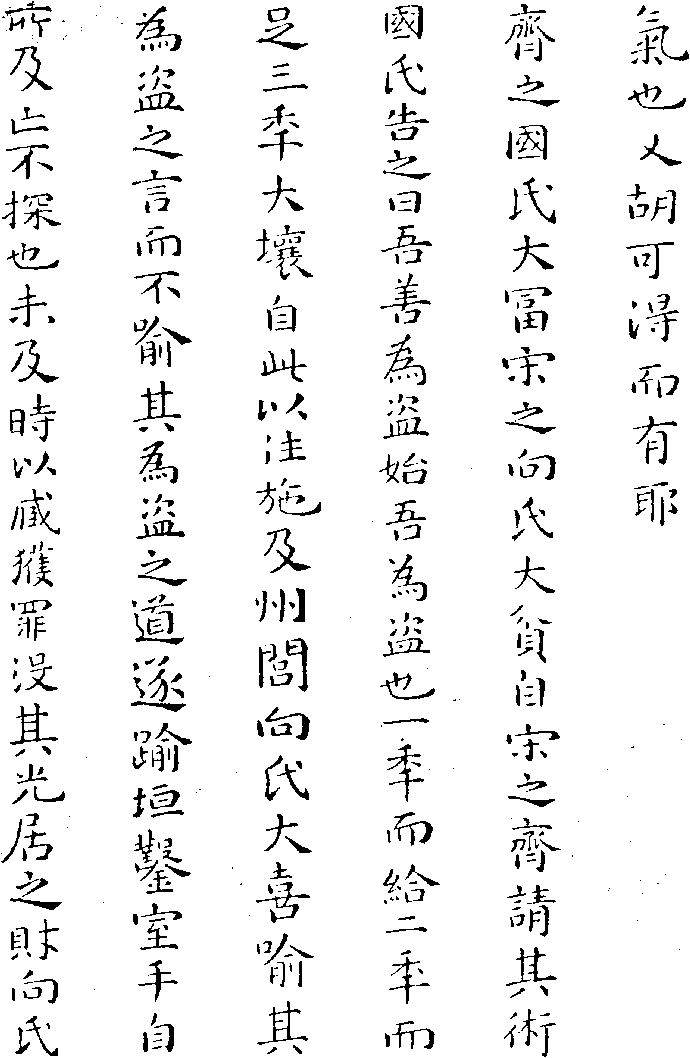 氣也又胡可得而有耶
齊之國氏大冨宋之向氏大貧自宋之齊請其術
國氏告之曰吾善為盜始吾為盜也一季而給二季而
足三季大壤自此以往施及州閭向氏大喜喻其
為盜之言而不喻其為盜之道遂踰垣鑿室手自
所及亡不探也未及時以臧獲罪没其先居之財向氏